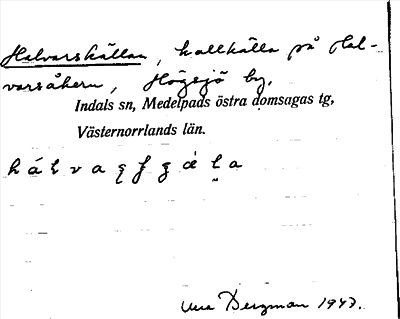 Halvarskällan, kallkälla på Hal-
varsåkern, Högsjö by.
Indals sn, Medelpads östra domsagas tg,
Västernorrlands län.
Bergman 1943.